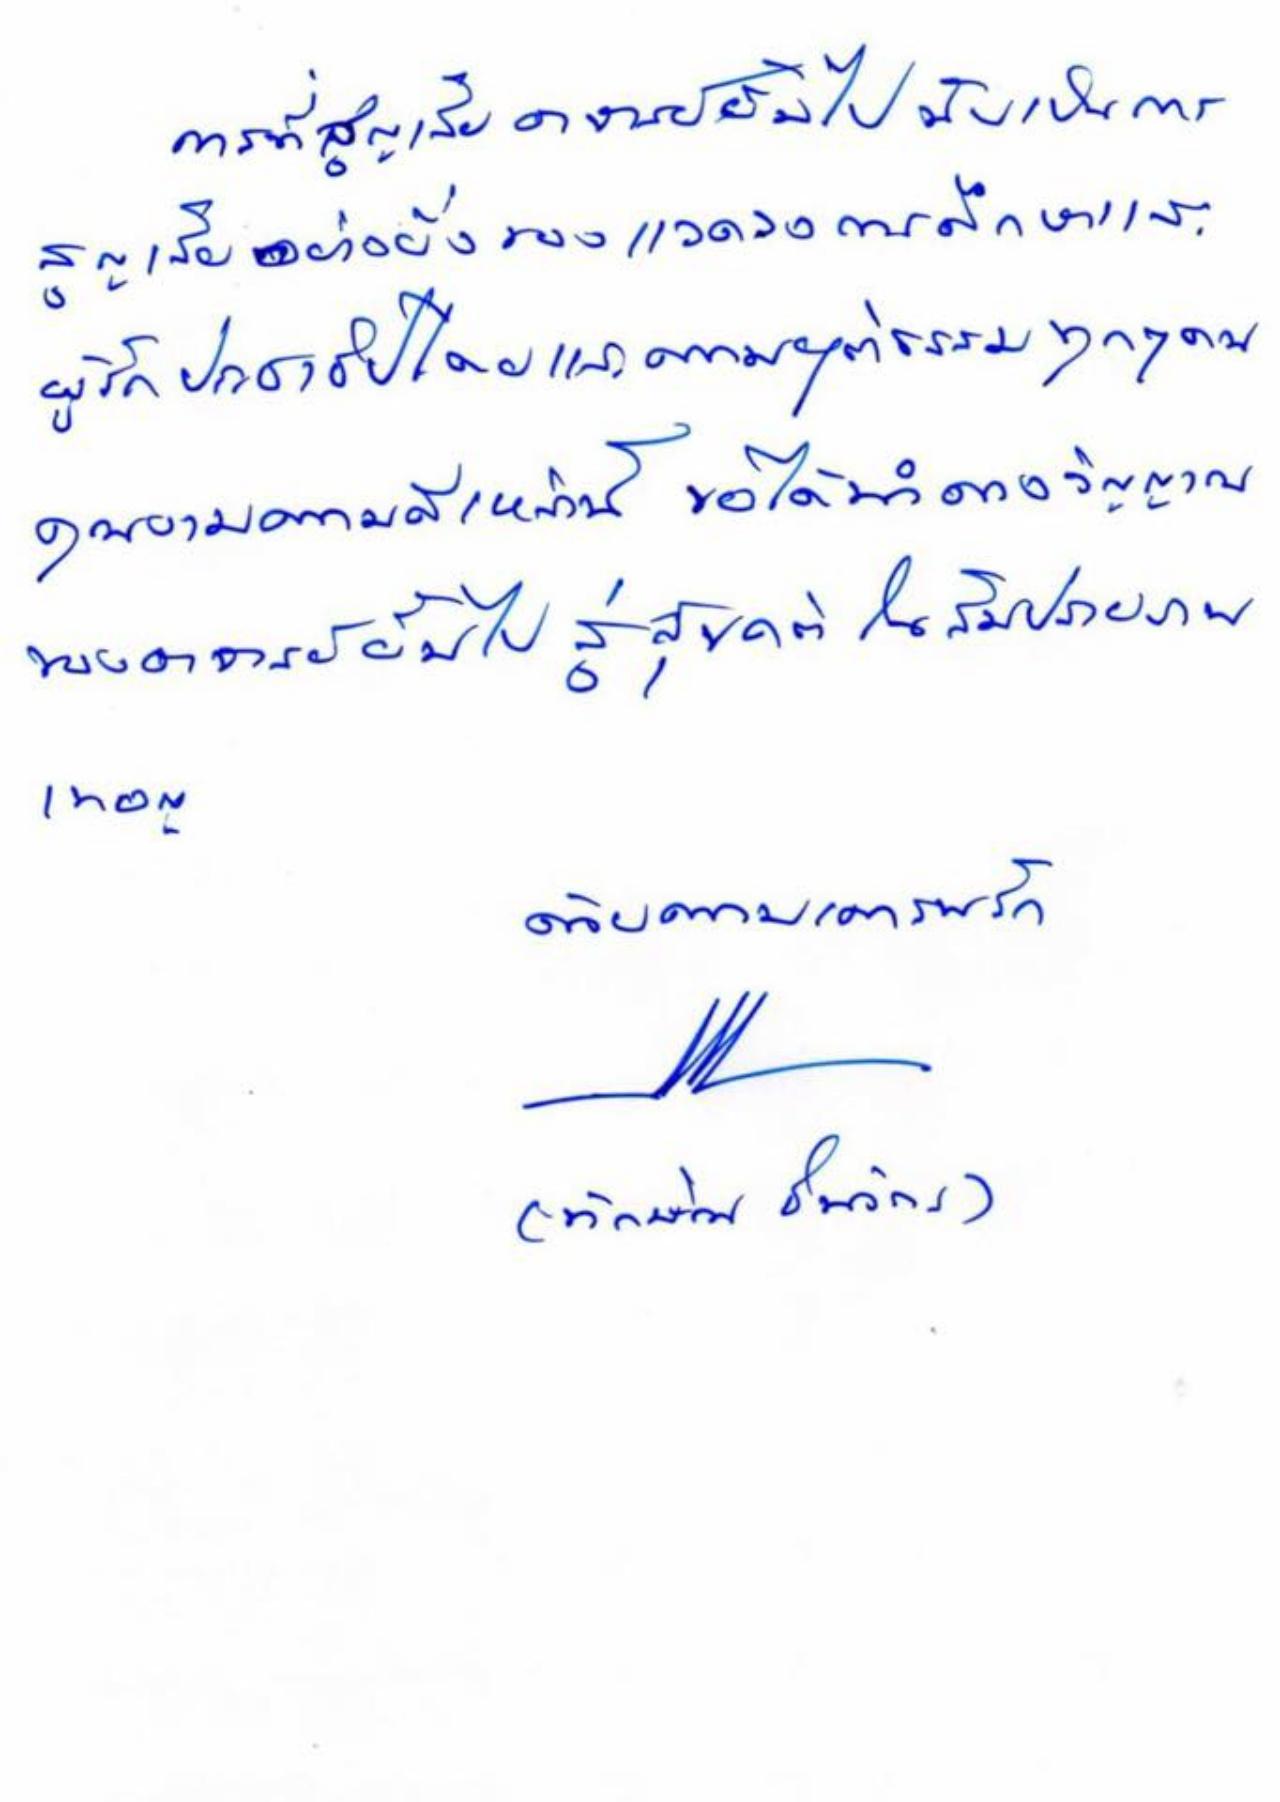 การที่สูญเสีย อาจารย์ยิ้มไป นับเป็นการ
สูญเสียอย่างยิ่ง ของ แวดวง การศึกษาและ
ผู้รัก ประชาธิปไตย และ ความยุติธรรม ทุกๆ คน
คุณงามความดีเหล่านี้ ขอได้นำ ดวงวิญญาณ
ของอาจารย์ยิ้มไป สู่สุขคติ ในสัมปรายภพ
เทอญ
ด้วยความเคารพรัก
(ทักษิณ ชินวัตร)